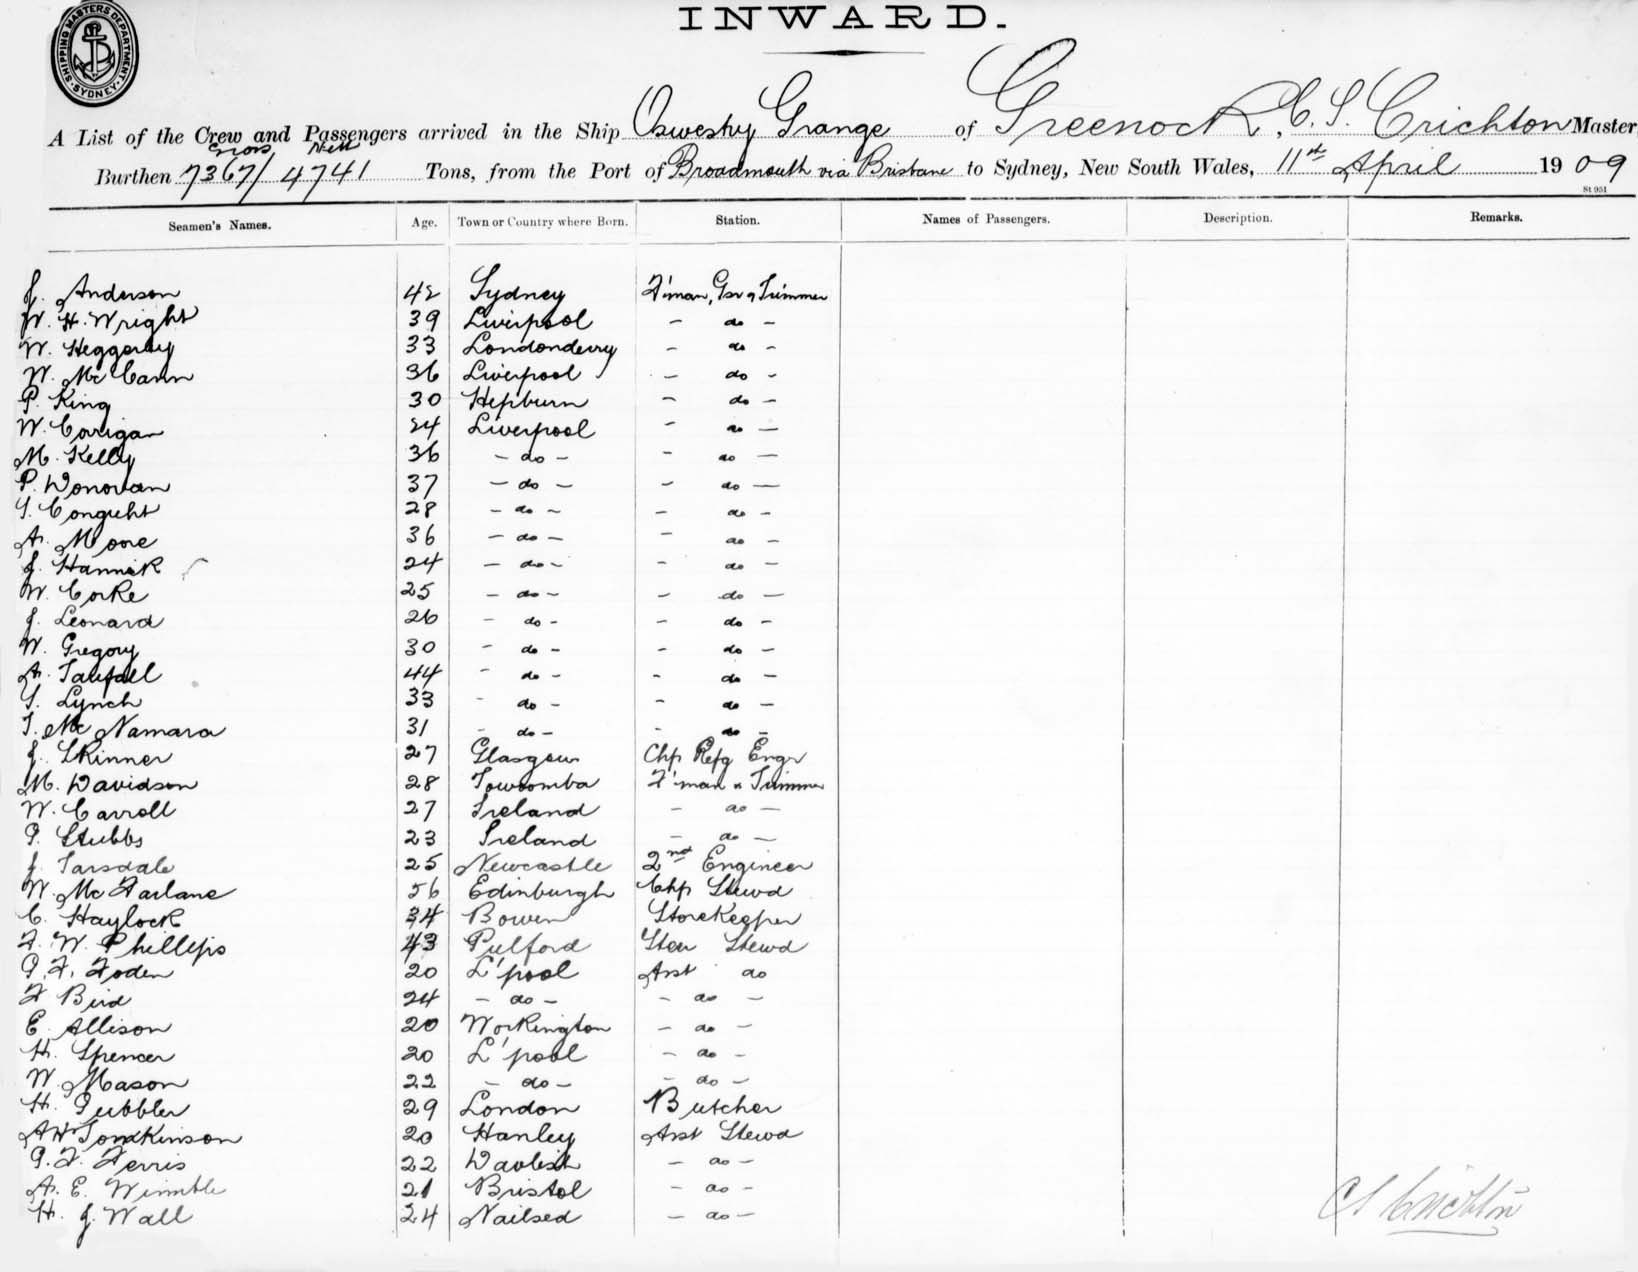 SHIPPING MASTERS DEPARTMENT. SYDNEY.
INWARD.
A List of the Crew and Passengers arrived in the Ship Oswestry Grange of Greenock, C. S. Crichton Master,
Gross Nett
Burthen 7367/4741 Tons, from the Port of Broadmouth via Brisbane to Sydney, New South Wales, 11th April 1909
St 951
Seamen's Names. Age. Town or Country where Born. Station. Names of Passengers. Description. Remarks.
J. Anderson 42 Sydney F'man, Gsr & Trimmer
W. H. Wright 39 Liverpool - do -
W. Heggarty 33 Londonderry - do -
W. McCann 36 Liverpool - do -
P. King 30 Hepburn - do -
W. Corrigan 24 Liverpool - do -
M. Kelly 36 - do - - do -
P. Donovan 37 - do - - do -
28 - do - - do -
A. Moore 36 - do - - do -
J. 24 - do - - do -
W. Corke 25 - do - - do -
J. Leonard 26 - do - - do -
W. Gregory 30 - do - - do -
A. 44 - do - - do -
Lynch 33 - do - - do -
T. McNamara 31 - do - - do -
J. Skinner 27 Glasgow Chf Refg Engr
M. Davidson 28 Towoomba F'man & Trimmer
W. Carroll 27 Ireland - do -
P. Stubbs 23 Ireland - do -
J. Tarsdale 25 Newcastle 2nd Engineer
W. McFarlane 56 Edinburgh Chf Stewd
C. Haylock 34 Bowen Storekeeper
F. W. Phillips 43 Pulford Stewd
P. F. Foden 20 L'pool Asst do
F Bird 24 - do - - do -
E. Allison 20 Workington - do -
H. Spencer 20 L'pool - do -
W. Mason 22 - do - - do -
H. 29 London Butcher
A W Tomkinson 20 Hanley Asst Stewd
P. F. Ferris 22 - do -
A. E. Wimble 21 Bristol - do -
H. J. Wall 24 Nailsea - do -
C S Crichton